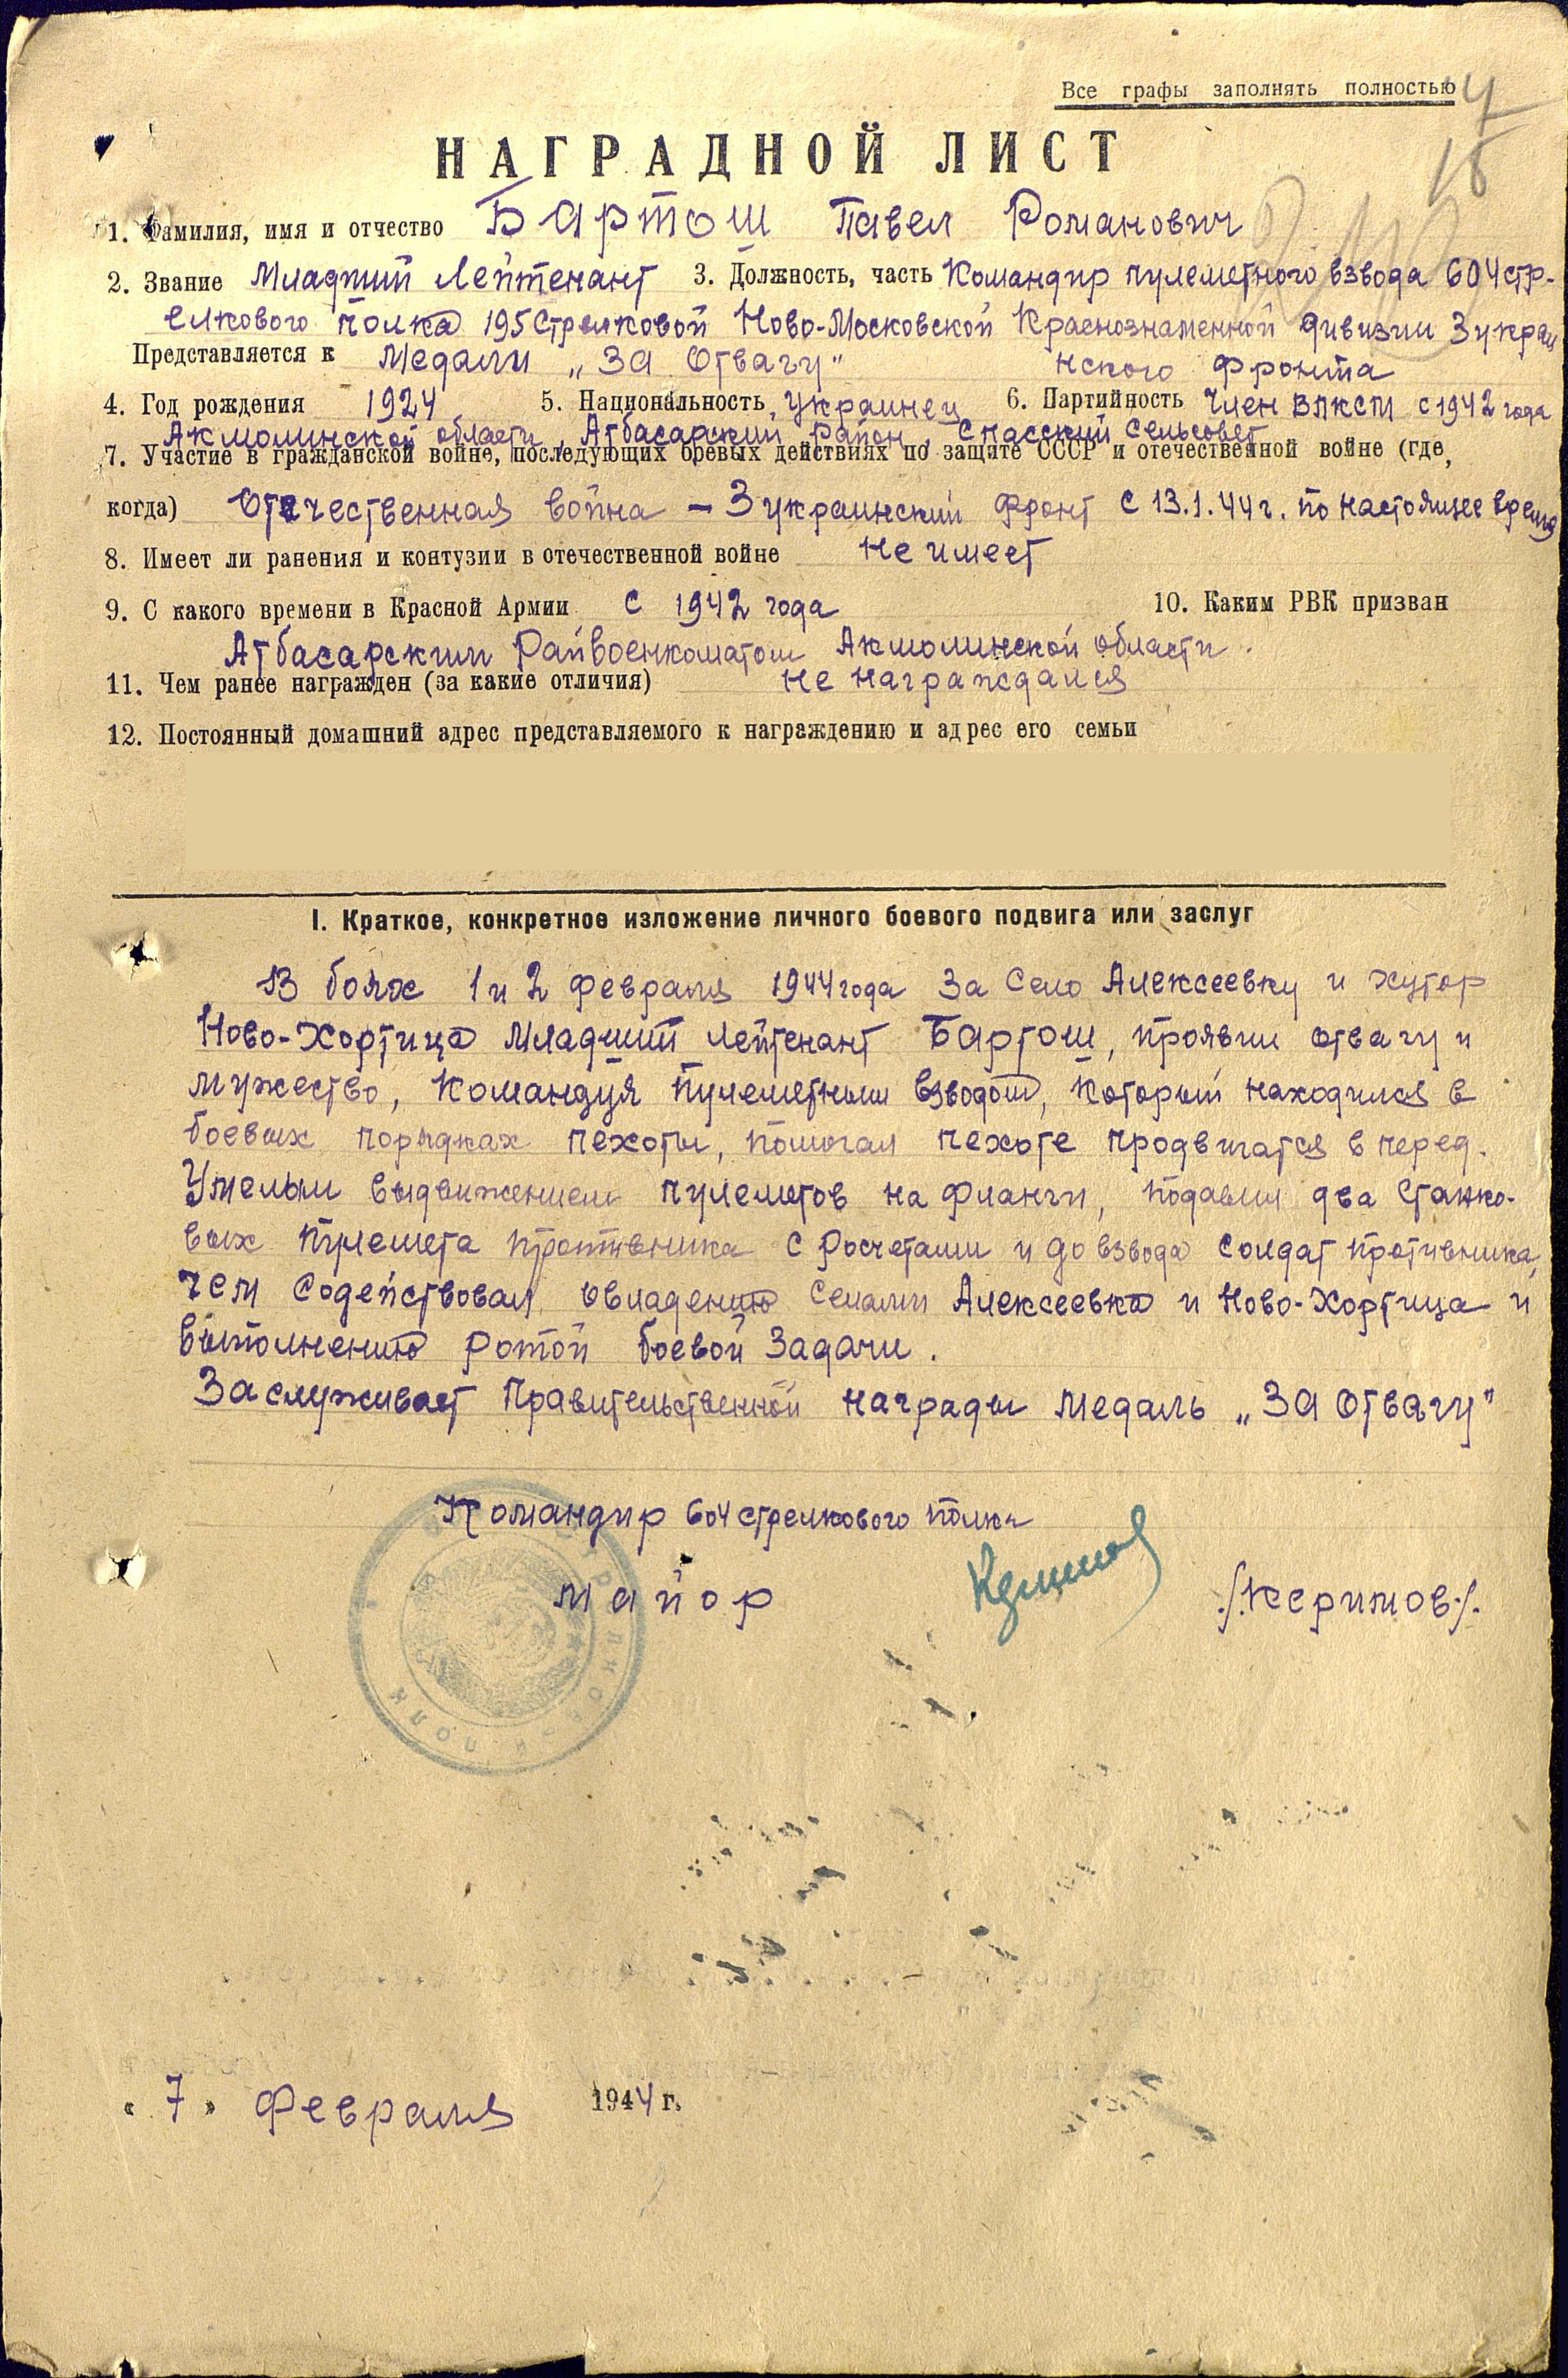 Все графы заполнять полностью
НАГРАДНОЙ ЛИСТ
1. Фамилия, имя и отчество Бартош Павел Романович
2. Звание Младший Лейтенант 3. Должность, часть Командир пулеметного взвода 604 стр-
елкового полка 195 Стрелковой Ново-Московской Краснознаменной дивизии 3 украи
Представляется к Медали „За Отвагу" нского фронта
4. Год рождения 1924 5. Национальность украинец 6. Партийность Член ВЛКСМ с 1942 года
Акмолинской области, Атбасарский район, Спасский Сельсовет
7. Участие в гражданской войне, последующих боевых действиях по защите СССР и отечественной войне (где,
когда) Отечественная война – 3 украинский фронт с 13.1.44г. по настоящее время
8. Имеет ли ранения и контузии в отечественной войне Не имеет
9. С какого времени в Красной Армии С 1942 года 10. Каким РВК призван
Атбасарским Райвоенкоматом Акмолинской области.
11. Чем ранее награжден (за какие отличия) Не награждался
12. Постоянный домашний адрес представляемого к награждению и адрес его семьи
I. Краткое, конкретное изложение личного боевого подвига или заслуг
В боях 1 и 2 февраля 1944 года За Село Алексеевку и хутор
Ново-Хортица Младший лейтенант Бартош, проявил отвагу и
мужество, командуя пулеметным взводом, который находился в
боевых порядках пехоты, помогал пехоте продвигатся в перед.
Умелым выдвижением пулеметов на фланги, подавил два станко-
вых пулемета противника с росчетами и до взвода солдат противника,
чем содействовал овладению Селами Алексеевка и Ново-Хортица и
выполнению ротой боевой задачи.
Заслуживает Правительственной награды медаль „За Отвагу"
Командир 604 стрелкового полка
майор /.Керимов./.
« 7 » Февраля 1944 г.